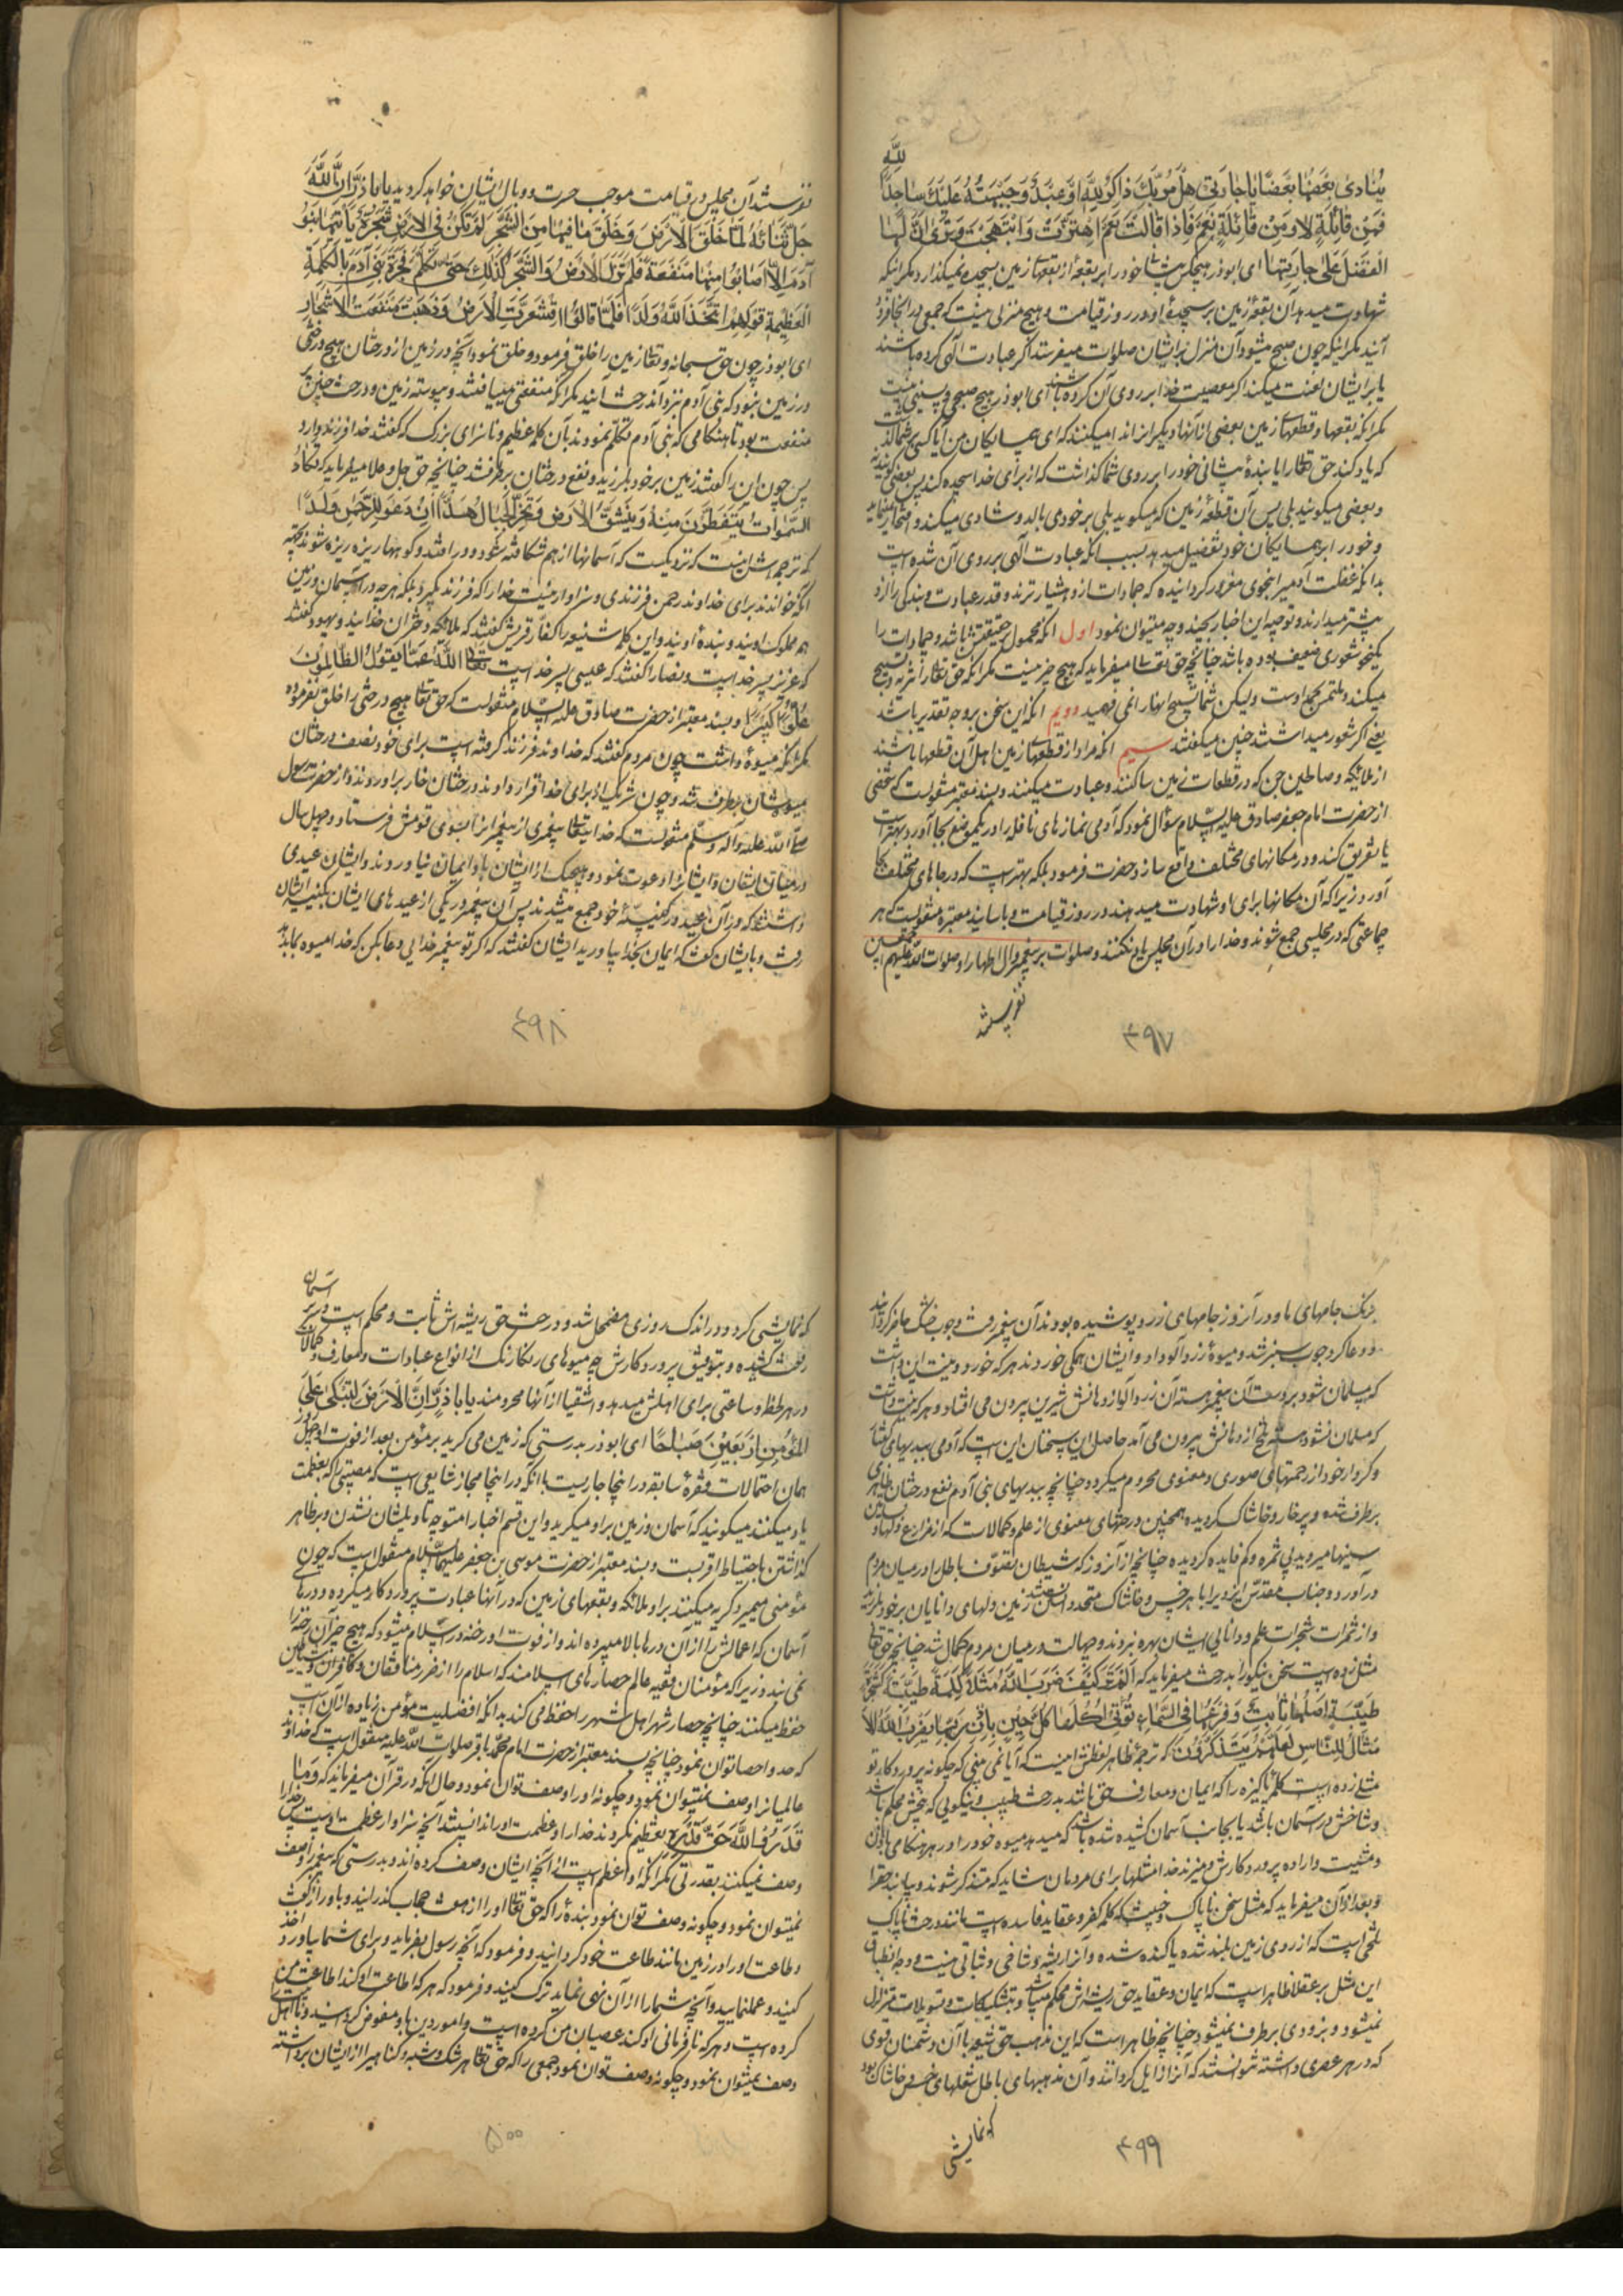 لله
ینادی بعضها بعضا یا جارتی هل مر بک ذاکر لله او عبد وضع جبهته علیک ساجدا
فمن قائلة لا و من قائلة نعم فاذا قالت نعم اهتزت و ابتهجت و تری ان لها
الفضل علی جارتها ای ابوذر هیچکس پیشانی خود را بر بقعهٔ از بقعهای زمین بسجده نمیگذارد مگر اینکه
شهادت میدهد آن بقعهٔ زمین بر سجدهٔ او در روز قیامت و هیچ منزلی نیست که جمعی در آنجا فرود
آیند مگر اینکه چون صبح میشود آن منزل بر ایشان صلوات میفرستد اگر عبادت الهی کرده باشند
یا بر ایشان لعنت میکند اگر معصیت خدا بر روی آن کرده باشند ای ابوذر هیچ صبحی و پسینی نیست
مگر آنکه بقعها و قطعهای زمین بعضی از آنها دیگری را ندا میکنند که ای همسایگان من آیا کسی بر شما گذشت
که یاد کند حق تعالی را یا بندهٔ پیشانی خود را بر روی شما گذاشت که از برای خدا سجده کند پس بعضی گویند نه
و بعضی میگویند بلی پس آن قطعهٔ زمین که میگوید بلی بر خود می بالد و شادی میکند و افتخار مینماید
و خود را بر همسایگان خود تفضیل میدهد بسبب آنکه عبادت الهی بر روی آن شده است
بدانکه غفلت آدمی را بنحوی مغرور گردانیده که جمادات از او هشیارترند و قدر عبادت و بندگی را از او
بیشتر میدانند و توجیه این اخبار بچند وجه میتوان نمود اول آنکه محمول بر حقیقتش باشد و جمادات را
یکنحو شعوری ضعیف بوده باشد چنانچه حق تعالی میفرماید که هیچ چیز نیست مگر آنکه حق تعالی را تنزیه و تسبیح
میکند و ملتبس بحمد اوست ولیکن شما تسبیح آنها را نمی فهمید دویم آنکه این سخن بر وجه تقدیر باشد
یعنی اگر شعور میداشتند چنین میگفتند سیم آنکه مراد از قطعهای زمین اهل آن قطعها باشند
از ملائکه و صالحین جن که در قطعات زمین ساکنند و عبادت میکنند و بسند معتبر منقولست که شخصی
از حضرت امام جعفر صادق علیه السلام سؤال نمود که آدمی نمازهای نافله را در یکموضع بجا آورد بهتر است
یا تفریق کند و در مکانهای مختلف واقع سازد حضرت فرمود بلکه بهتر است که در جاهای مختلف بجا
آورد زیرا که آن مکانها برای او شهادت میدهند در روز قیامت و باسانید معتبره منقولست که هر
جماعتی که در مجلسی جمع شوند و خدا را در آن مجلس یاد نکنند و صلوات بر پیغمبر و آل اطهار او صلوات الله علیهم اجمعین
نفرستند
۴۹۷
نفرستند آن مجلس در قیامت موجب حسرت و وبال ایشان خواهد گردید یا باذر ان الله
جل ثنائه لما خلق الارض و خلق ما فیها من الشجر لم تکن فی الارض شجرة یاتیها بنو
آدم الا اصابوا منها منفعة فلم تزل الارض و الشجر کذلک حتی تکلم فجرة بنی آدم بالکلمة
العظیمة قولهم اتخذ الله ولدا فلما قالوا اقشعرت الارض و ذهبت منفعت الاشجار
ای ابوذر چون حق سبحانه و تعالی زمین را خلق فرمود و خلق نمود آنچه در زمین از درختان هیچ درختی
در زمین نبود که بنی آدم نزد آن درخت آیند مگر آنکه منفعتی مییافتند و پیوسته زمین و درخت چنین با
منفعت بود تا هنگامی که بنی آدم تکلم نمودند بآن کلمه عظیم و ناسزای بزرگ که گفتند خدا فرزند دارد
پس چون این را گفتند زمین بر خود بلرزید و نفع درختان برطرف شد چنانچه حق جل و علا میفرماید که تکاد
السموات یتفطرن منه و ینشق الارض و تخر الجبال هدا ان دعوا للرحمن ولدا
که ترجمه اش اینست که نزدیکست که آسمانها از هم شکافته شود و دور افتد و کوهها ریزه ریزه شوند بجهة
آنکه خواندند برای خداوند رحمن فرزندی و سزاوار نیست خدا را که فرزند گیرد بلکه هر چه در آسمان و زمین
هم مملوک اویند و بندهٔ اویند و این کلمه شنیعه را کفار قریش گفتند که ملائکه دختران خدایند و یهود گفتند
که عزیز پسر خداست و نصارا گفتند که عیسی پسر خداست تعالی الله عما یقول الظالمون
علوا کبیرا و بسند معتبر از حضرت صادق علیه السلام منقولست که حق تعالی هیچ درختی را خلق نفرموده
مگر آنکه میوهٔ داشت چون مردم گفتند که خداوند فرزند گرفته است برای خود نصف درختان
میوهشان برطرف شد و چون شریک از برای خدا قرار دادند درختان خار برآوردند و از حضرت رسول
صلی الله علیه و آله و سلم منقولست که خدای تعالی پیغمبری از پیغمبران را بسوی قومش فرستاد و چهل سال
در میان ایشان و ایشان را دعوت نمود و هیچیک از ایشان باو ایمان نیاوردند و ایشان عیدی
داشتند که در آن عید در کنیسهٔ خود جمع میشدند پس آن پیغمبر در یکی از عیدهای ایشان بکنیسه ایشان
رفت و بایشان گفت که ایمان بخدا بیاورید ایشان گفتند که اگر تو پیغمبر خدایی دعا بکن که خدا میوه بما بدهد
۴۹۸
برنگ جامهای ما و در آنروز جامهای زرد پوشیده بودند آن پیغمبر رفت و چوب خشک حاضر گردانید
و دعا کرد چوب سبز شد و میوهٔ زردآلو داد و ایشان همگی خوردند هر که خورد و نیت این داشت
که مسلمان شود بر دست آن پیغمبر هستهٔ آن زردآلو از دهانش شیرین بیرون می افتاد و هر که نیت داشت
که مسلمان نشود هستهٔ تلخ از دهانش بیرون می آمد حاصل این سخنان این است که آدمی ببدیهای گفتار
و کردار خود از رحمتهای صوری و معنوی محروم میگردد چنانچه ببدیهای بنی آدم نفع درختان ظاهری
برطرف شده و پر خار و خاشاک گردیده همچنین درختهای معنوی از علم و کمالات که از مزارع دلها و بساتین
سینها میروید بی ثمره و کم فایده گردیده چنانچه از آنروز که شیطان بقوت باطل را در میان مردم
درآورد و جناب مقدس ایزدی را با هر خس و خاشاک متحد دانستند زمین دلهای دانایان بر خود بلرزید
و از ثمرات شجرات علم و دانایی ایشان بهره نبردند و جهالت در میان مردم کمال شد چنانچه حق تعالی
مثل زده است سخن نیکو را بدرخت میفرماید که الم تر کیف ضرب الله مثلا کلمة طیبة کشجرة
طیبة اصلها ثابت و فرعها فی السماء تؤتی اکلها کل حین باذن ربها یضرب الله الا
مثال للناس لعلهم یتذکرون که ترجمهٔ ظاهر لفظش اینست که آیا نمی بینی که چگونه پروردگار تو
مثلی زده است کلمهٔ پاکیزه را که ایمان و معارف حق باشد بدرخت طیب و نیکویی که بیخش محکم باشد
و شاخش در آسمان باشد یا بجانب آسمان کشیده شده باشد که میدهد میوه خود را در هر هنگامی باذن
و مشیت و اراده پروردگارش و میزند خدا مثلها برای مردمان شاید که متذکر شوند و بیابند حق را
و بعد از آن میفرماید که مثل سخن ناپاک و خبیث که کلمه کفر و عقاید فاسده است مانند درخت ناپاک
تلخی است که از روی زمین بلند شده یا کنده شده و آنرا ریشه و شاخی و ثباتی نیست و وجه انطباق
این مثل بر عقلا ظاهر است که ایمان و عقاید حق ریشه اش محکم میباشد و بتشکیکات و تسویلات متزلزل
نمیشود و بزودی برطرف نمیشود چنانچه ظاهر است که این مذهب حق شیعه با آن دشمنان قوی
که در هر عصری داشته نتوانستند که آنرا زایل گردانند و آن مذهبهای باطل شعلهای خس و خاشاک بود
که نمایشی
۴۹۹
آسمان
که نمایشی کرد و در اندک روزی مضمحل شد و درخت حق ریشه اش ثابت و محکم است و سر بر
رفعت کشیده و بتوفیق پروردگارش چه میوهای رنگارنگ از انواع عبادات و معارف و کمالات
در هر لحظه و ساعتی برای اهلش میدهد و اشقیا از آنها محرومند یا باذر ان الارض لتبکی علی
المؤمن اربعین صباحا ای ابوذر بدرستی که زمین می گرید بر مؤمن بعد از فوت او چهل روز
همان احتمالات فقرهٔ سابقه در اینجا جاریست با آنکه در اینجا مجاز شایعی است که مصیبتی را که بعظمت
یاد میکنند میگویند که آسمان و زمین بر او میگرید و این قسم اخبار را متوجه تاویلشان نشدن و بر ظاهر
گذاشتن باحتیاط اقربست و بسند معتبر از حضرت موسی بن جعفر علیهما السلام منقول است که چون
مؤمنی میمیرد گریه میکنند بر او ملائکه و بقعهای زمین که در آنها عبادت پروردگار میکرده و درهای
آسمان که اعمالش را از آن درها بالا میبرده اند و از فوت او رخنه در اسلام میشود که هیچ چیز آن رخنه را
نمی بندد زیرا که مؤمنان فقیه عالم حصارهای اسلامند که اسلام را از ضرر منافقان و کافران و شیاطین
حفظ میکنند چنانچه حصار شهر اهل شهر را حفظ می کند بدانکه افضلیت مؤمن زیاده از آن است
که حد و احصا توان نمود چنانچه بسند معتبر از حضرت امام محمد باقر صلوات الله علیه منقول است که خداوند
عالمیان را وصف نمیتوان نمود و چگونه او را وصف توان نمود و حال آنکه در قرآن میفرماید که و ما
قدروا الله حق قدره یعنی تعظیم نکردند خدا را و عظمت او را ندانستند آنچه سزاوار عظمت اوست پس خدا را
وصف نمیکنند بقدرتی مگر آنکه او اعظم است از آنچه ایشان وصف کرده اند و بدرستی که پیغمبر را وصف
نمیتوان نمود و چگونه وصف توان نمود بندهٔ را که حق تعالی او را از هفت حجاب گذرانید و باو راز گفت
و طاعت او را در زمین مانند طاعت خود گردانید و فرمود که آنچه رسول بفرماید و برای شما بیاورد اخذ
کنید و عمل نمایید و آنچه شما را از آن نهی نماید ترک کنید و فرمود که هر که اطاعت او کند اطاعت من
کرده است و هر که نافرمانی او کند عصیان من کرده است و امور دین باو مفوض گردانید و ما اهل بیت را
وصف نمیتوان نمود و چگونه وصف توان نمود جمعی را که حق تعالی هر شک و شبه و گناهی را از ایشان برداشته
۵۰۰